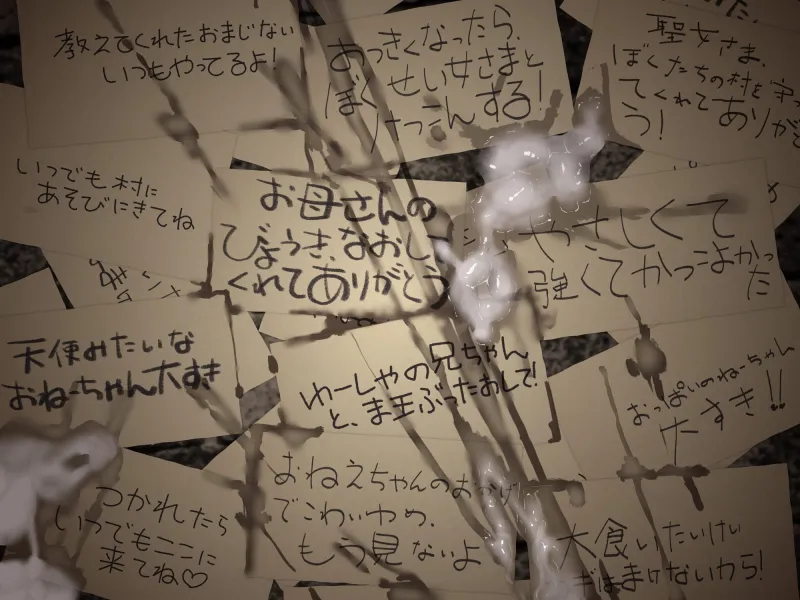 教えてくれたおまじない
いつもやってるよ!
おっきくなったら、
ぼくせい女さまと
けっこんする!
聖女さま、
ぼくたちの村を守っ
てくれてありが
う!
いつでも村に
あそびにきてね
お母さんの
びょうき、なおし
くれてありがとう
やさしくて
強くてかっこよかっ
た
天使みたいな
おねーちゃん大すき
ゆーしゃの兄ちゃん
と、ま王ぶったおして!
おっぱいのねーちゃん
大すき!!
つかれたら
いつでもここに
来てね♡
おねえちゃんのおかげ
でこわいゆめ、
もう見ないよ
大食いたいけい
ぎはまけないから!